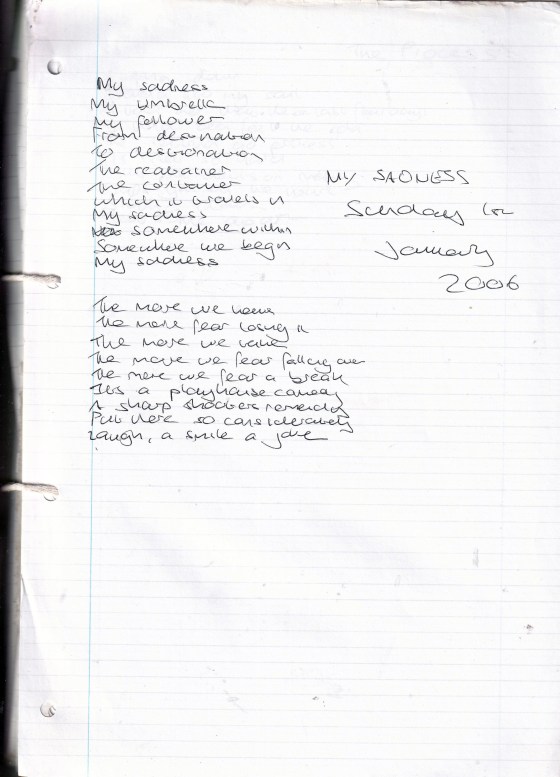 My sadness
My umbrella
My follower
From destination
To destination
The retainer
The container
which it travels in
My sadness
somewhere within
Somewhere we begin
My sadness
MY SADNESS
Sunday 1st
January
2006
The more we have
The more fear losing it
The more we value
The more we fear falling over
The more we fear a break
Its a playhouse comedy
A sharp shooters remedy
Put here so considerately
Laugh, a smile a joke